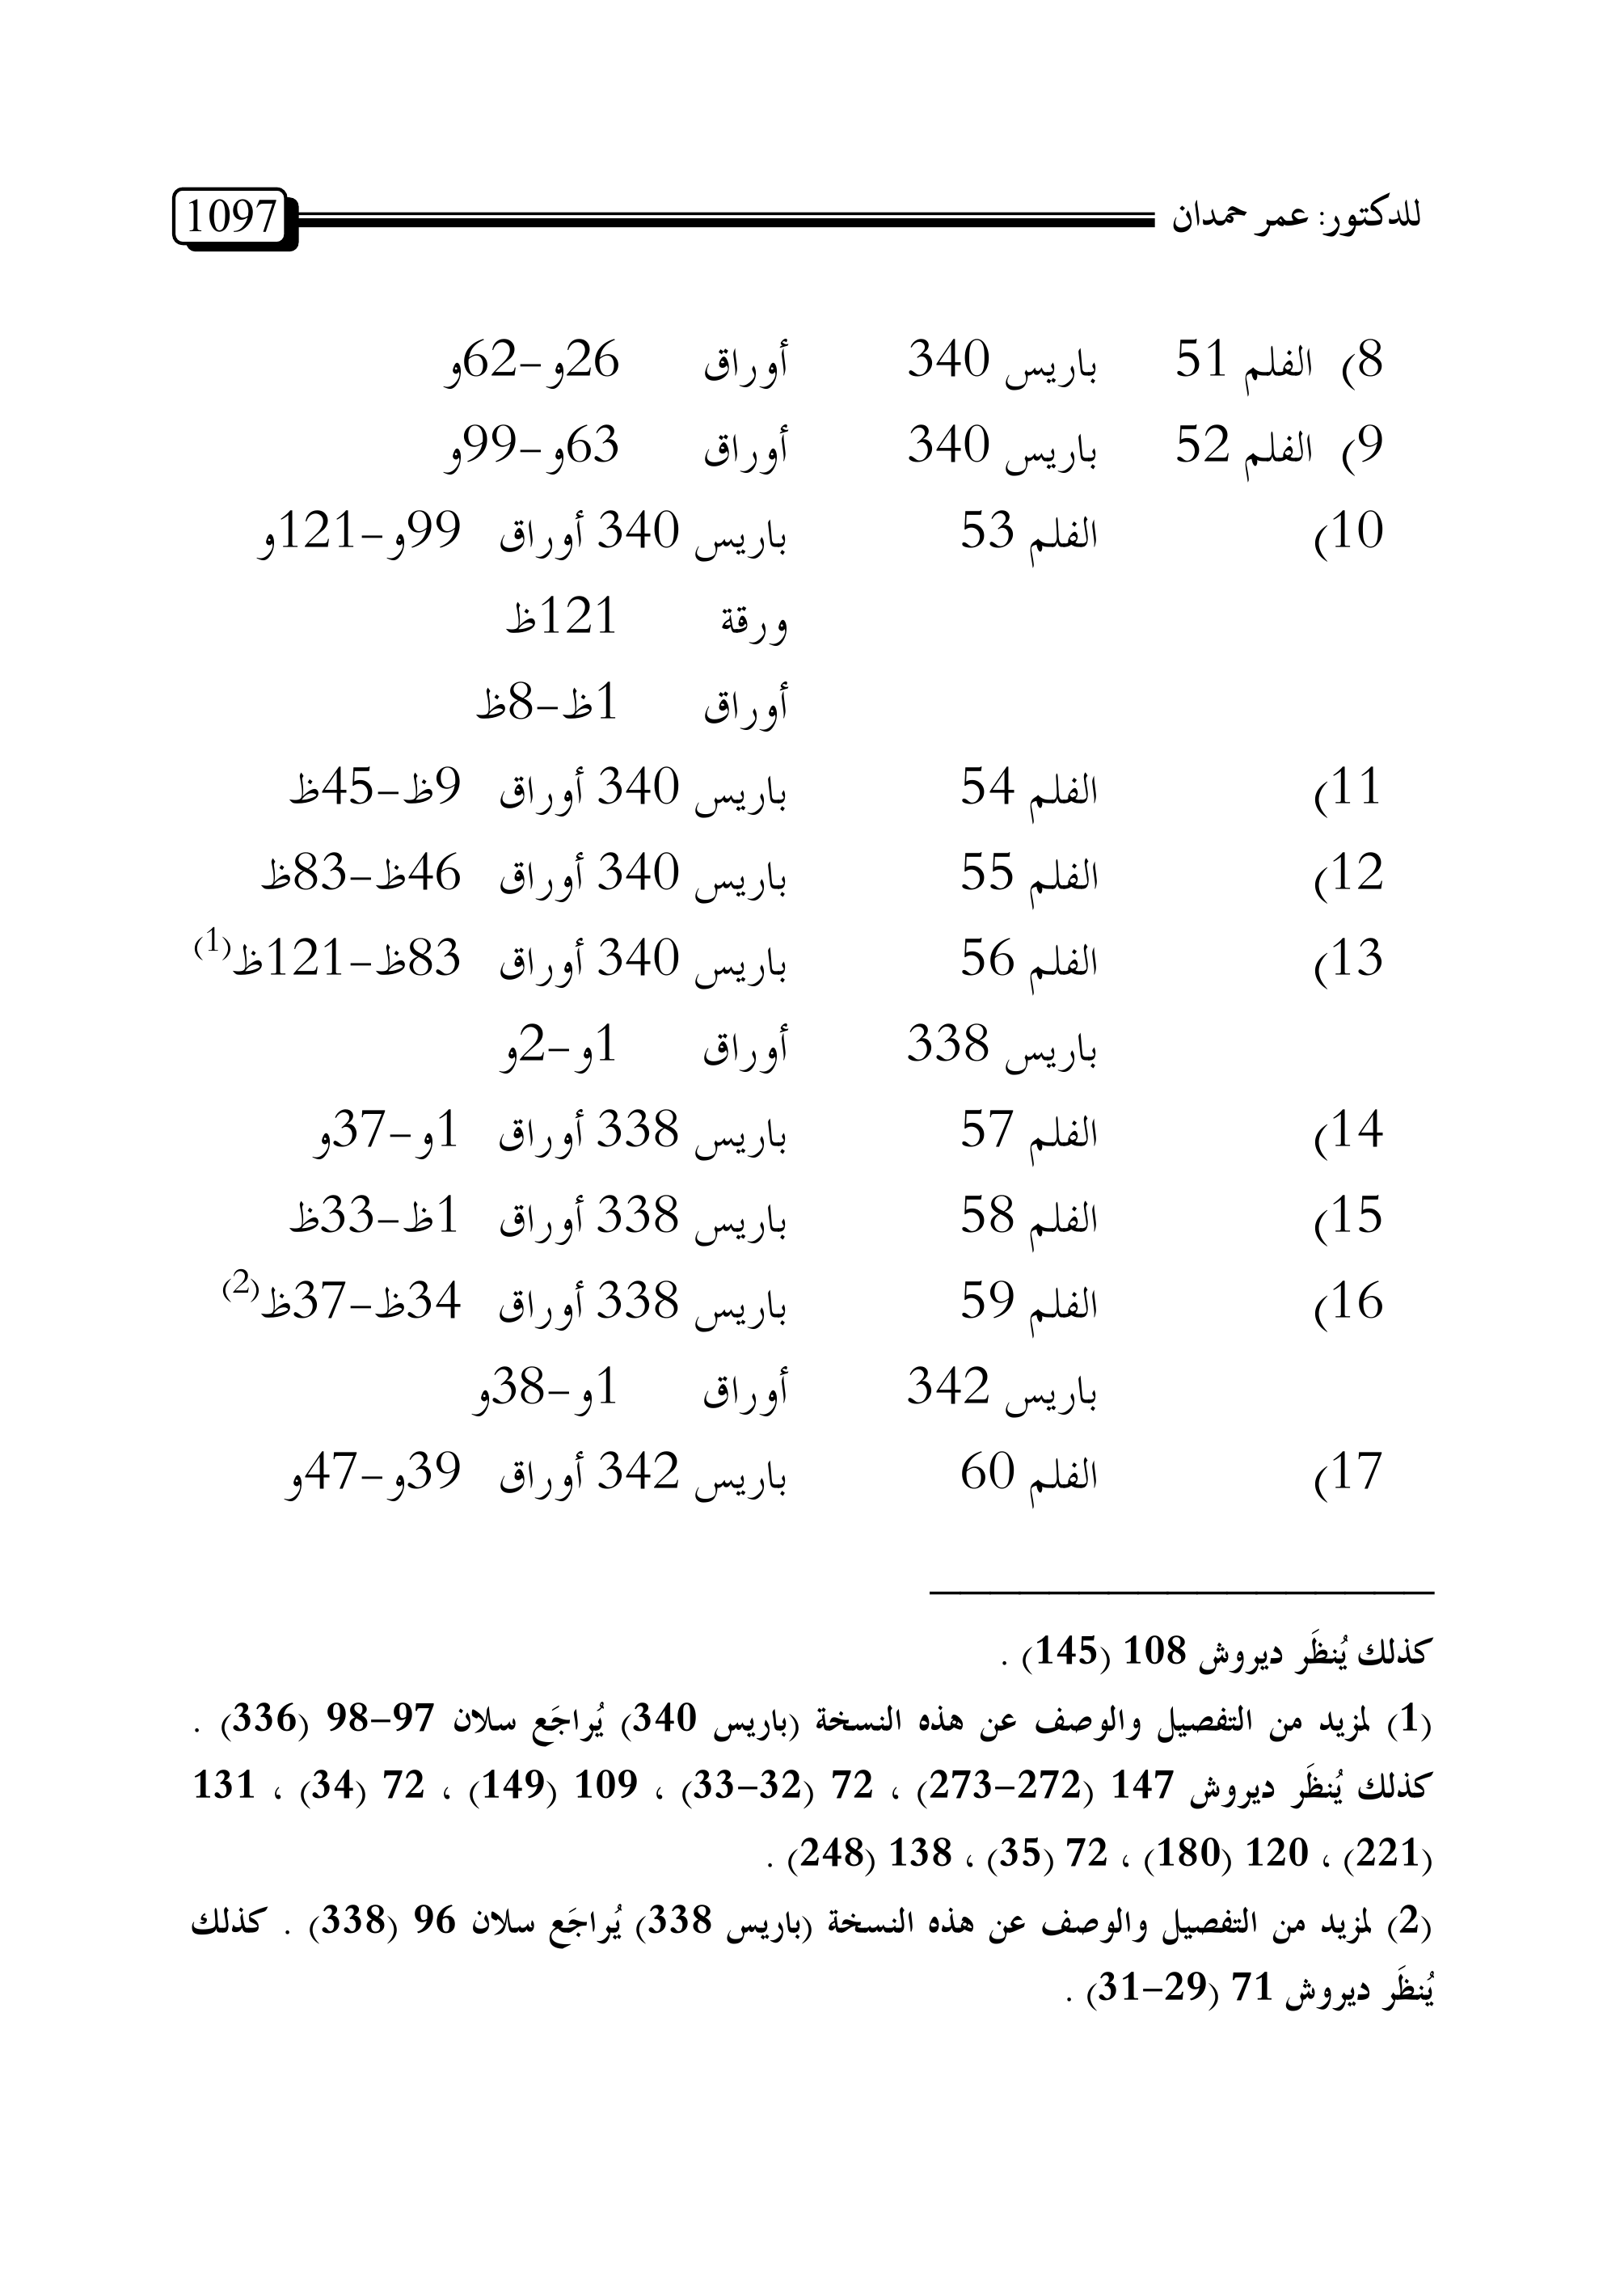 للدكتور: عمر حمدان 1097
8) الفلم 51 باريس 340 أوراق 26و–62و
9) الفلم 52 باريس 340 أوراق 63و–99و
10) الفلم 53 باريس 340 أوراق 99و–121و
ورقة 121ظ
أوراق 1ظ–8ظ
11) الفلم 54 باريس 340 أوراق 9ظ–45ظ
12) الفلم 55 باريس 340 أوراق 46ظ–83ظ
13) الفلم 56 باريس 340 أوراق 83ظ–121ظ(1)
باريس 338 أوراق 1و–2و
14) الفلم 57 باريس 338 أوراق 1و–37و
15) الفلم 58 باريس 338 أوراق 1ظ–33ظ
16) الفلم 59 باريس 338 أوراق 34ظ–37ظ(2)
باريس 342 أوراق 1و–38و
17) الفلم 60 باريس 342 أوراق 39و–47و
كذلك يُنظَر ديروش 108 (145) .
(1) لمزيد من التفصيل والوصف عن هذه النسخة (باريس 340) يُراجَع سلان 97–98 (336) .
كذلك يُنظَر ديروش 147 (272–273) ، 72 (32–33) ، 109 (149) ، 72 (34) ، 131
(221) ، 120 (180) ، 72 (35) ، 138 (248) .
(2) لمزيد من التفصيل والوصف عن هذه النسخة (باريس 338) يُراجَع سلان 96 (338) . كذلك
يُنظَر ديروش 71 (29–31) .